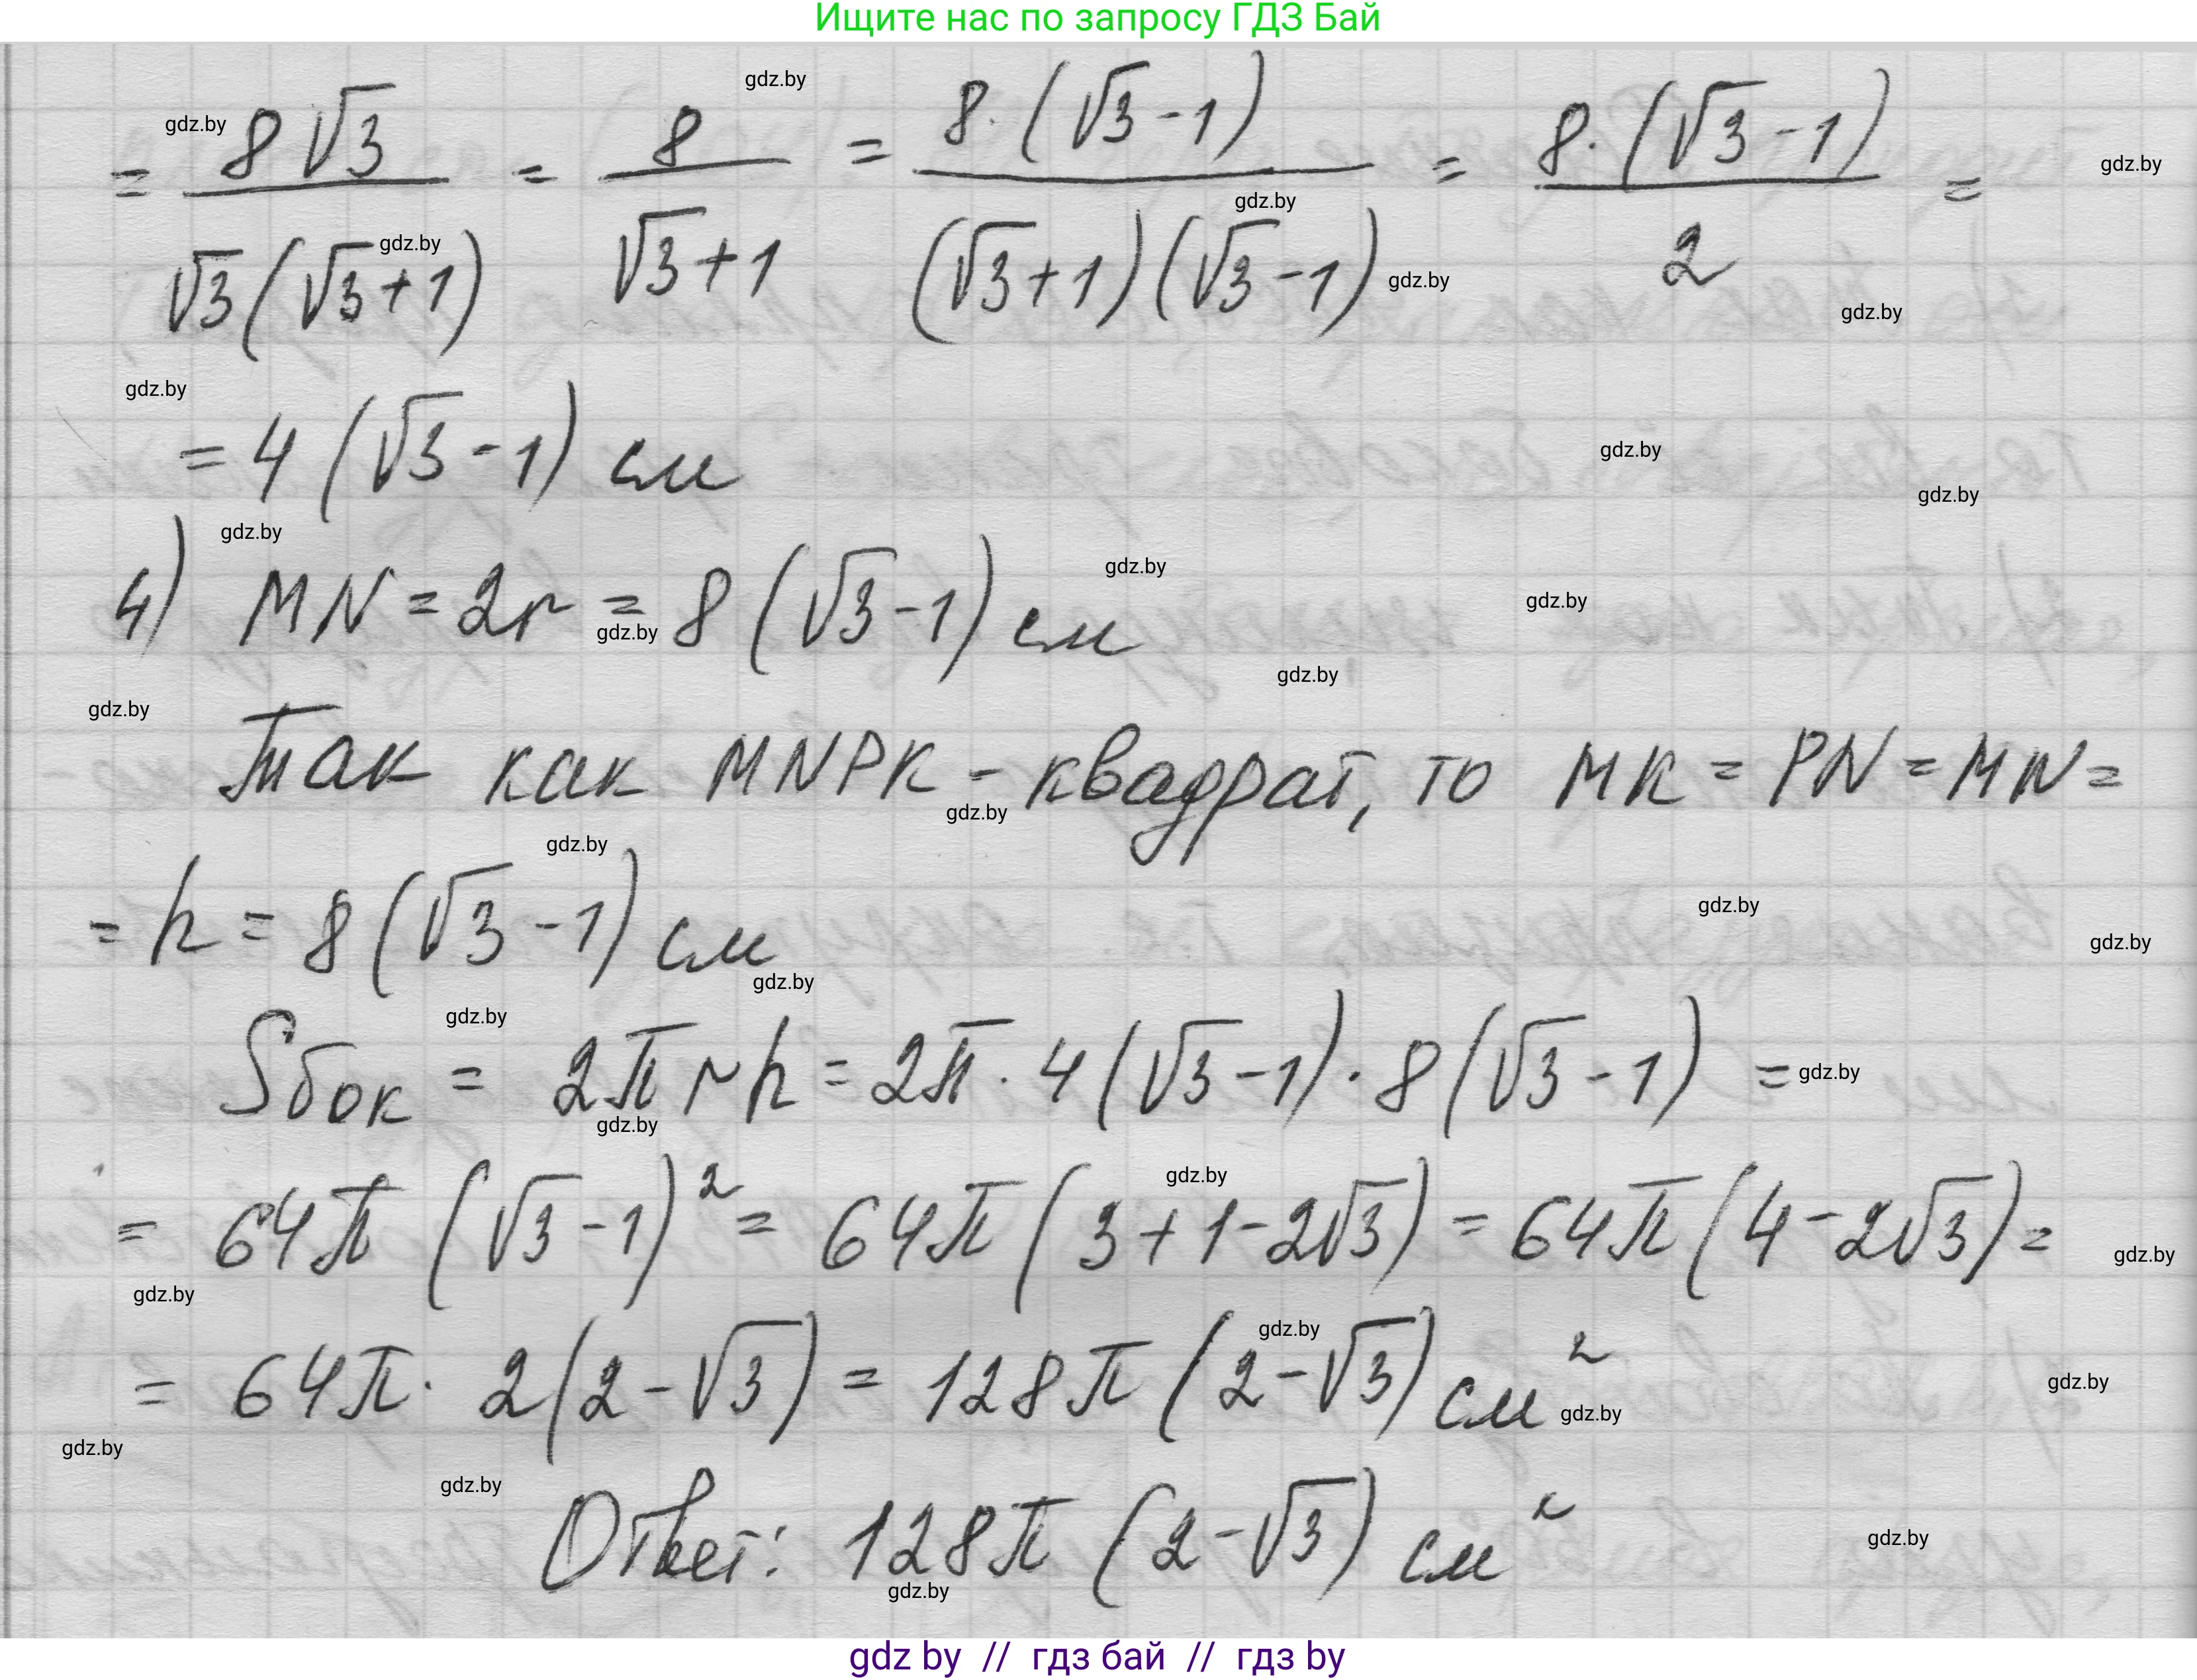 Ищите нас по запросу ГДЗ Бай
= 8√3 / √3(√3+1) = 8 / √3+1 = 8·(√3-1) / (√3+1)(√3-1) = 8·(√3-1) / 2 =
= 4(√3-1) см
4) MN = 2r = 8(√3-1) см
Так как MNPK - квадрат, то MK = PN = MN =
= h = 8(√3-1) см
Sбок = 2πrh = 2π·4(√3-1)·8(√3-1) =
= 64π(√3-1)² = 64π(3+1-2√3) = 64π(4-2√3) =
= 64π·2(2-√3) = 128π(2-√3) см²
Ответ: 128π(2-√3) см²
gdz by // гдз бай // гдз by